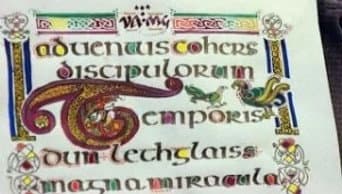 aduentuscohers
discipulorum
Temporis
dun lethglaiss
magna miracula